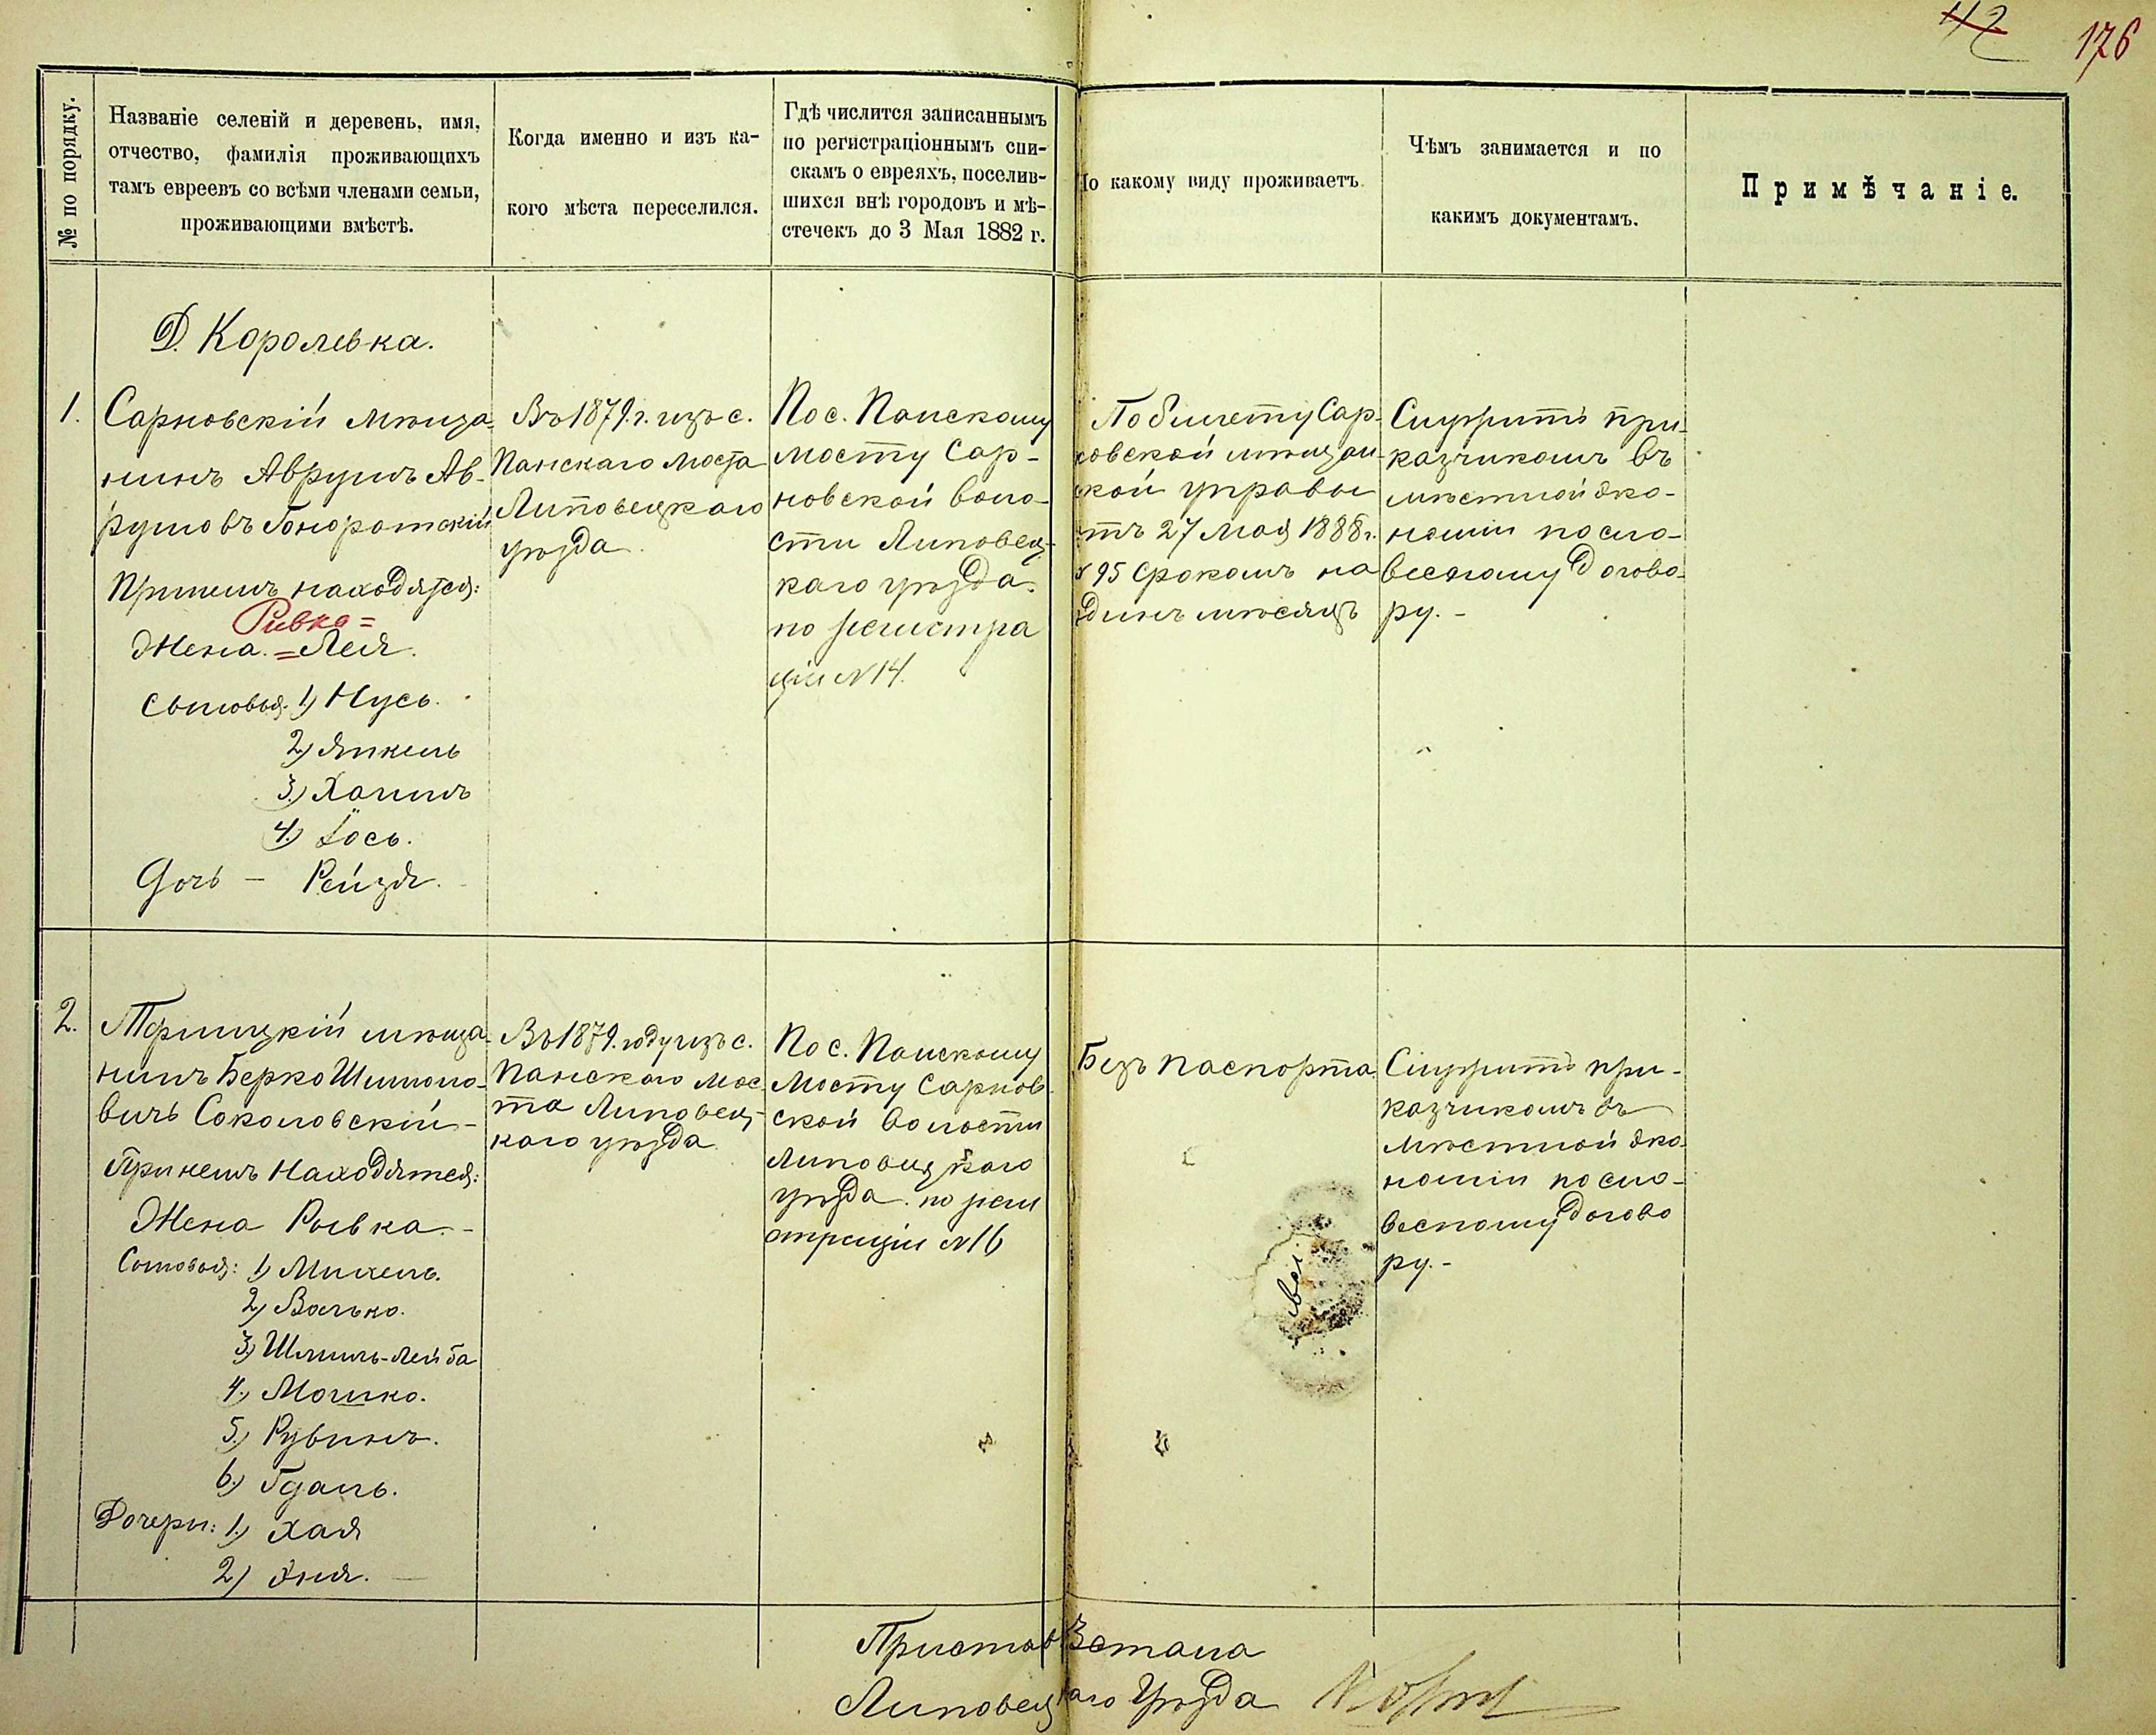 42 176
№ по порядку.
Названіе селеній и деревень, имя,
отчество, фамилія проживающихъ
тамъ евреевъ со всѣми членами семьи,
проживающими вмѣстѣ.
Когда именно и изъ ка-
кого мѣста переселился.
Гдѣ числится записаннымъ
по регистраціоннымъ спи-
скамъ о евреяхъ, поселив-
шихся внѣ городовъ и мѣ-
стечекъ до 3 Мая 1882 г.
По какому виду проживаетъ.
Чѣмъ занимается и по
какимъ документамъ.
Примѣчаніе.
Д. Королевка.
1.
Сарновскій мѣща-
нинъ Аврумъ Ав-
румовъ Гоноратскій
При немъ находятся:
Ривка=
Жена.=Лея.
Сыновья: 1) Нусь.
2) Янкель
3.) Хаимъ
4.) Іось.
Дочь — Рейзя.
Въ 1879. г. изъ с.
Панскаго Моста
Липовецкаго
уѣзда.
По с. Панскому
мосту Сар-
новской воло-
сти Липовец-
каго уѣзда.
по регистра
ціи №14.
По билету Сар-
новской мѣщан-
ской управы
отъ 27 Мая 1888 г.
№ 95 срокомъ на
одинъ мѣсяцъ
Служитъ при-
казчикомъ въ
мѣстной эко-
номіи по сло-
весному догово-
ру.-
2.
мѣща-
нинъ Берко Шимоно-
вичъ Соколовскій-
При немъ находятся:
Жена Рывка.-
Сыновья: 1) Михель.
2) Волько.
3) Шмиль-Лейба
4.) Мошко.
5.) Рувинъ.
6.) Гдаль.
Дочери: 1.) Хая
2) Эня. —
Въ 1879. году изъ с.
Панского Мос-
та Липовец-
каго уѣзда.
По с. Панскому
Мосту Сарнов-
ской волости
Липовецкаго
уѣзда. по реги
страціи №16
Безъ паспорта.
Служитъ при-
казчикомъ въ
мѣстной эко-
номіи по сло-
весному догово
ру.-
Приставъ 3 стана
Липовецкаго Уѣзда